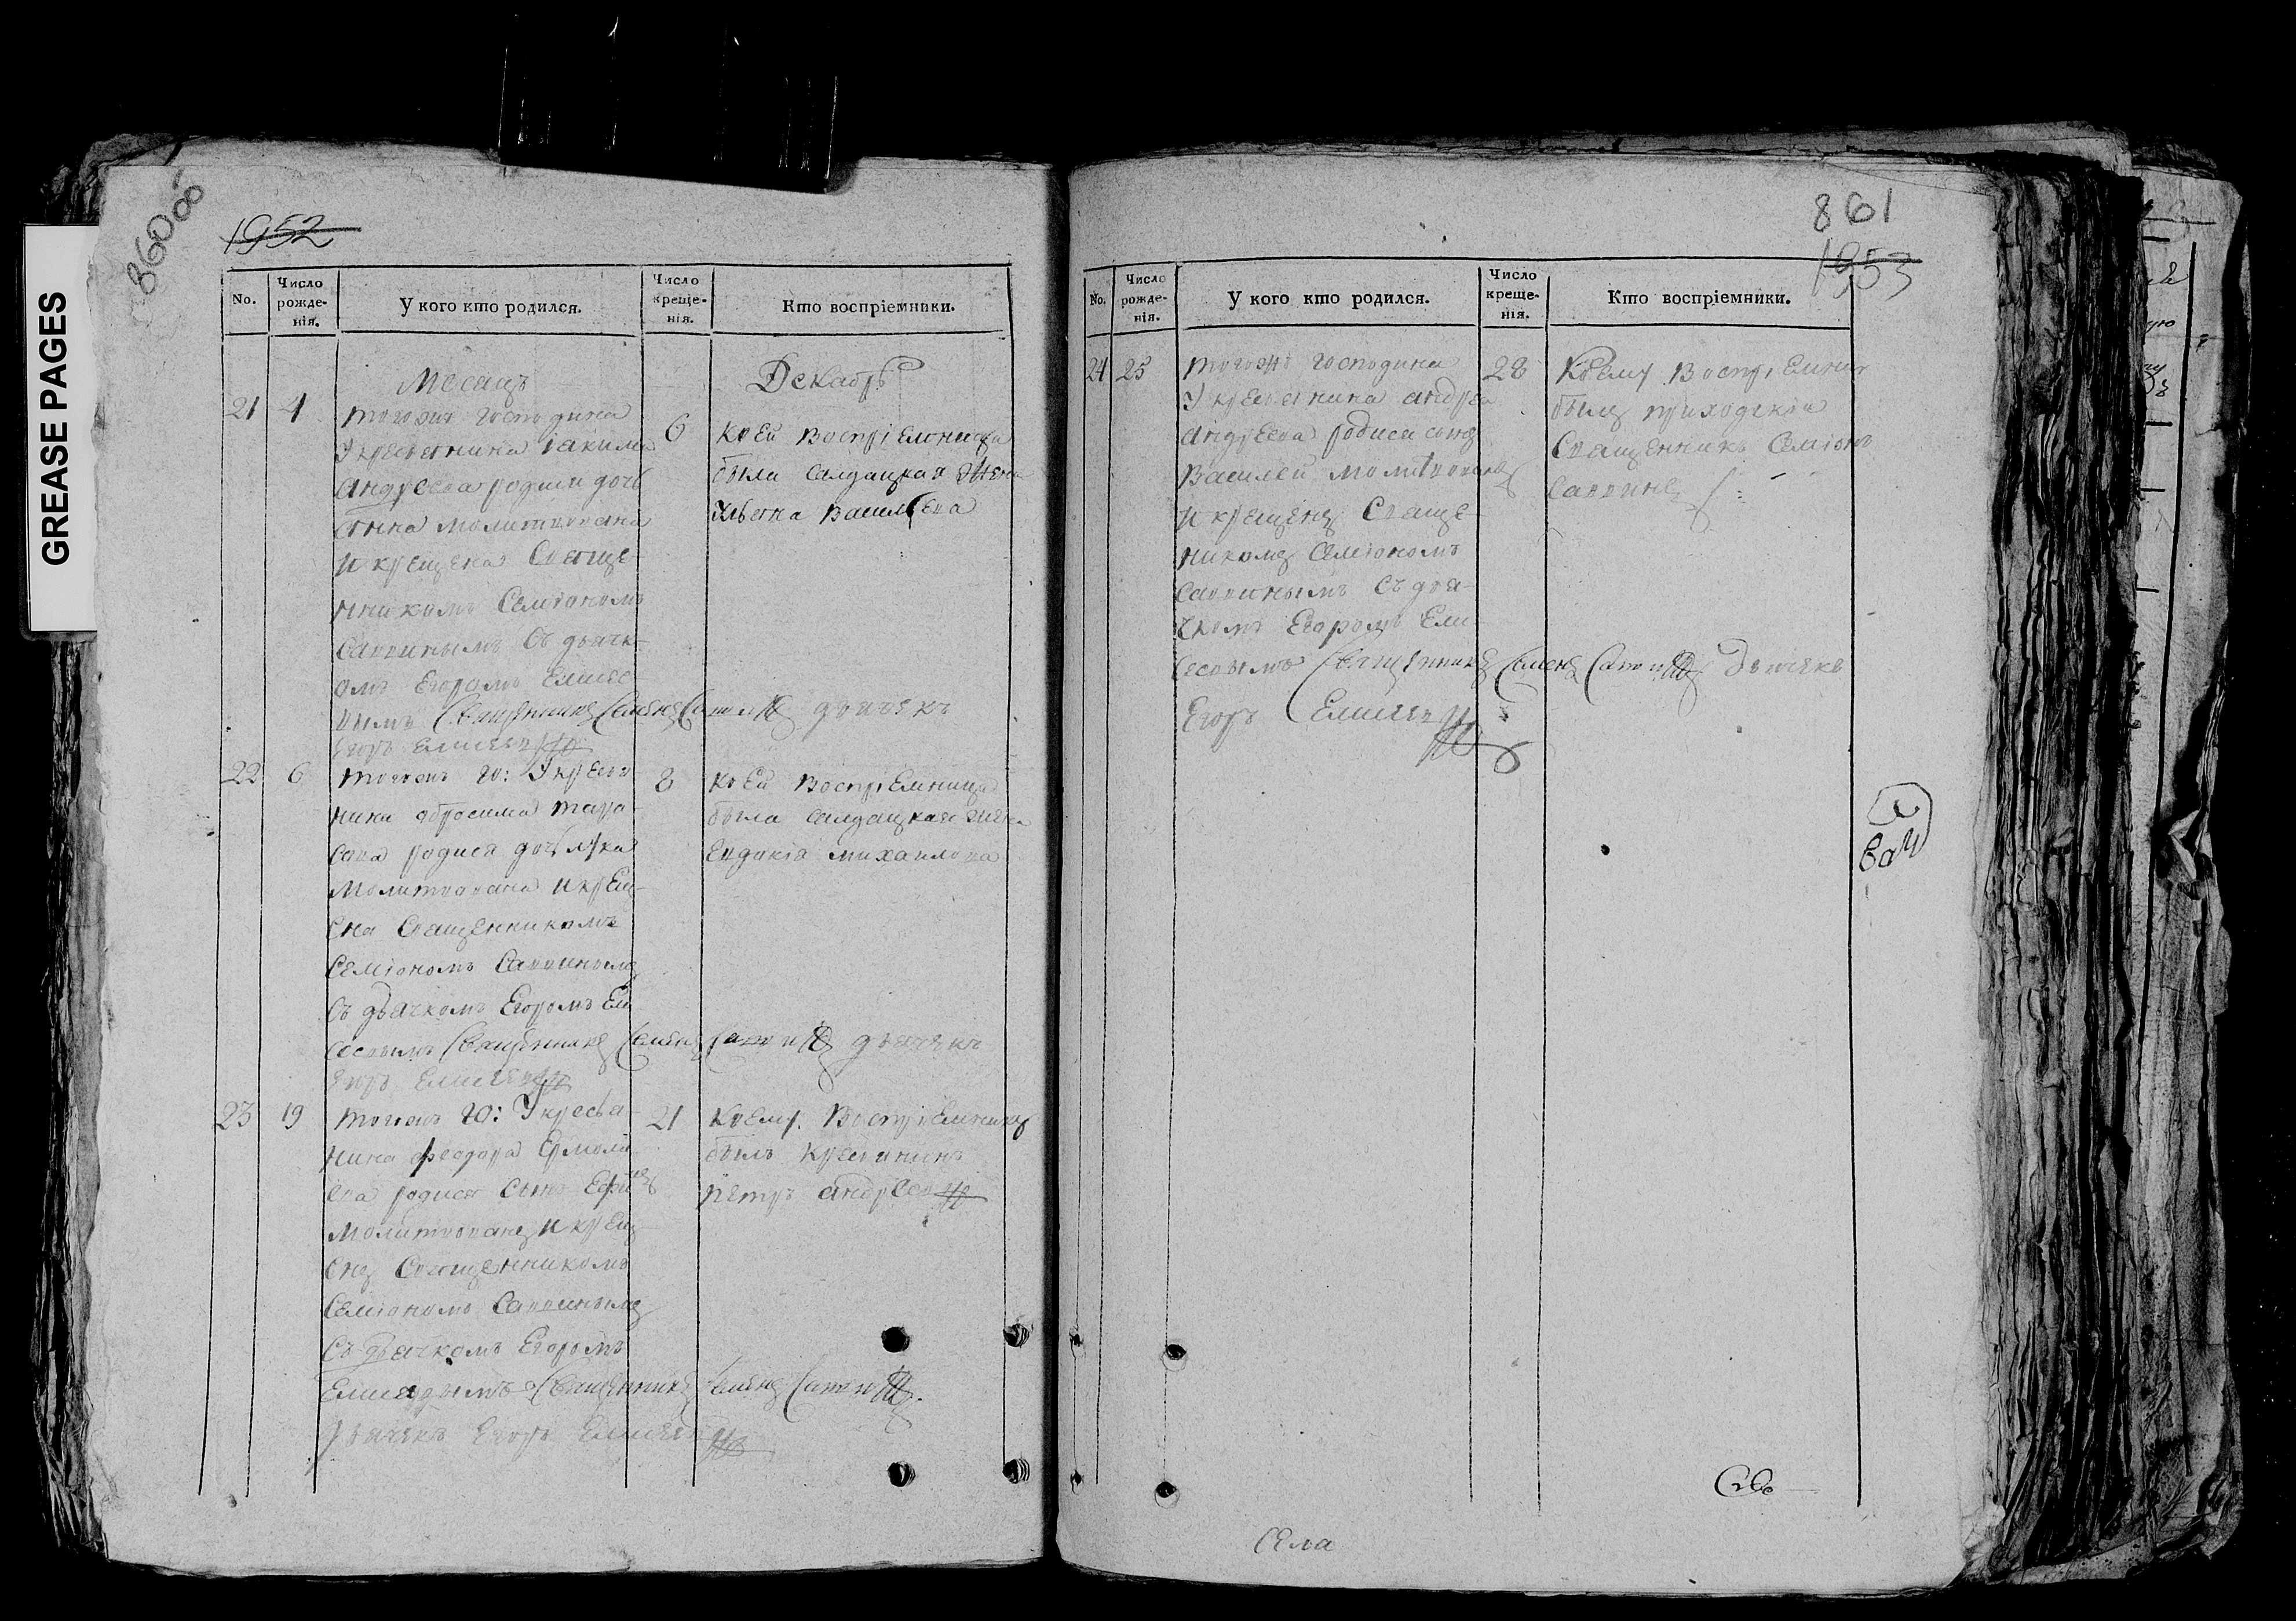 GREASE PAGES
860об
1952
No.
Число рожде-нія.
У кого кто родился.
Число креще-нія.
Кто воспріемники.
Месацъ Декабрь
21 4 6
тогожъ господина
У кресьтенина іакима
андреева родиси дочь
анна молитвована
и крещена Свеще
нникомъ Семіономъ
Саввинымъ Съ дьячк-
омъ Егоромъ Елисее-
вымъ Священникъ Семенъ Саввинъ дьячекъ
Егоръ Елисеевъ
коей воспріемница
была Салдацкая жена
Васильева
22 6 8
тогожъ го: У кресть
нина абросима тара
сова родися дочь
молитвована и крещ-
ена Священникомъ
Семіономъ Саввинымъ
Съ дьячкомъ Егоромъ Ели
сеевымъ Священникъ Семенъ Саввинъ дьячекъ
Егоръ Елисеевъ
коей воспріемница
была Салдацкая жена
Евдокія михаилова
23 19 21
тогожъ го: У кресьа-
нина феодора Ермола
ева родися Сынъ
молитвованъ и крещ-
енъ Священникомъ
Семіономъ Саввинымъ
Съ дьячкомъ Егоромъ
Елисеевымъ Священникъ Семенъ Саввинъ
Дьячекъ Егоръ Елисеевъ
Коему Воспріемникъ
былъ кресьанинъ
петръ андреевъ
861
1953
No.
Число рожде-нія.
У кого кто родился.
Число креще-нія.
Кто воспріемники.
24 25 28
тогожъ господина
У кресьтенина андрея
андреева родися сынъ
Василей молитвованъ
и крещенъ Свяще-
никомъ Семіономъ
Саввинымъ Съ дья-
чкомъ Егоромъ Ели-
сеевымъ Священникъ Семенъ Саввинъ Дьячекъ
Егоръ Елисеевъ
Коему Воспріемник
былъ приходской
Священникъ Семіонъ
Саввинъ
Села